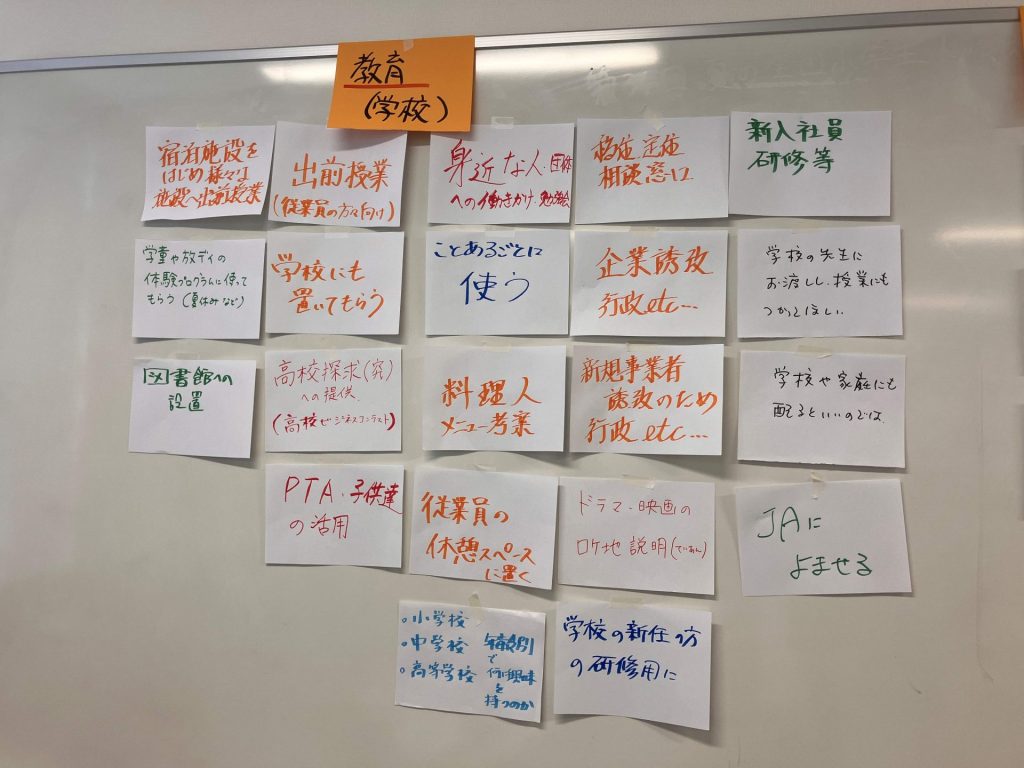 教育
(学校)
宿泊施設を
はじめ様々な
施設へ出前授業
出前授業
(従業員の方々向け)
身近な人・団体
への働きかけ・勉強会
移住定住
相談窓口
新入社員
研修等
学童や放デイの
体験プログラムに使って
もらう(夏休みなど)
学校にも
置いてもらう
ことあるごとに
使う
企業誘致
行政etc…
学校の先生に
お渡しし、授業にも
つかってほしい
図書館への
設置
高校探求(究)
への提供
(高校ビジネスコンテスト)
料理人
メニュー考案
新規事業者
誘致のため
行政etc…
学校や家庭にも
配るといいのでは
PTA・子供達
の活用
従業員の
休憩スペース
に置く
ドラマ・映画の
ロケ地説明(ていあん)
JAに
よませる
。小学校
。中学校
。高等学校
年齢別
で
何に興味
を
持つのか
学校の新任の方
の研修用に